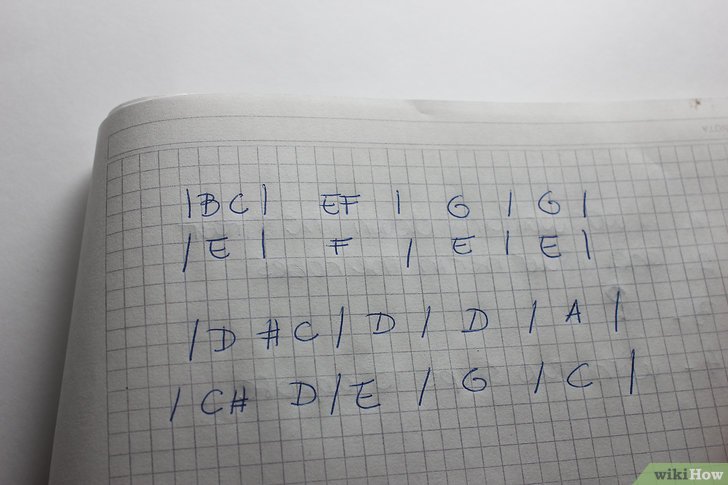 |B C| EF | G | G |
| E | F | E | E |
| D #C | D | D | A |
| C# D | E | G | C |
wikiHow